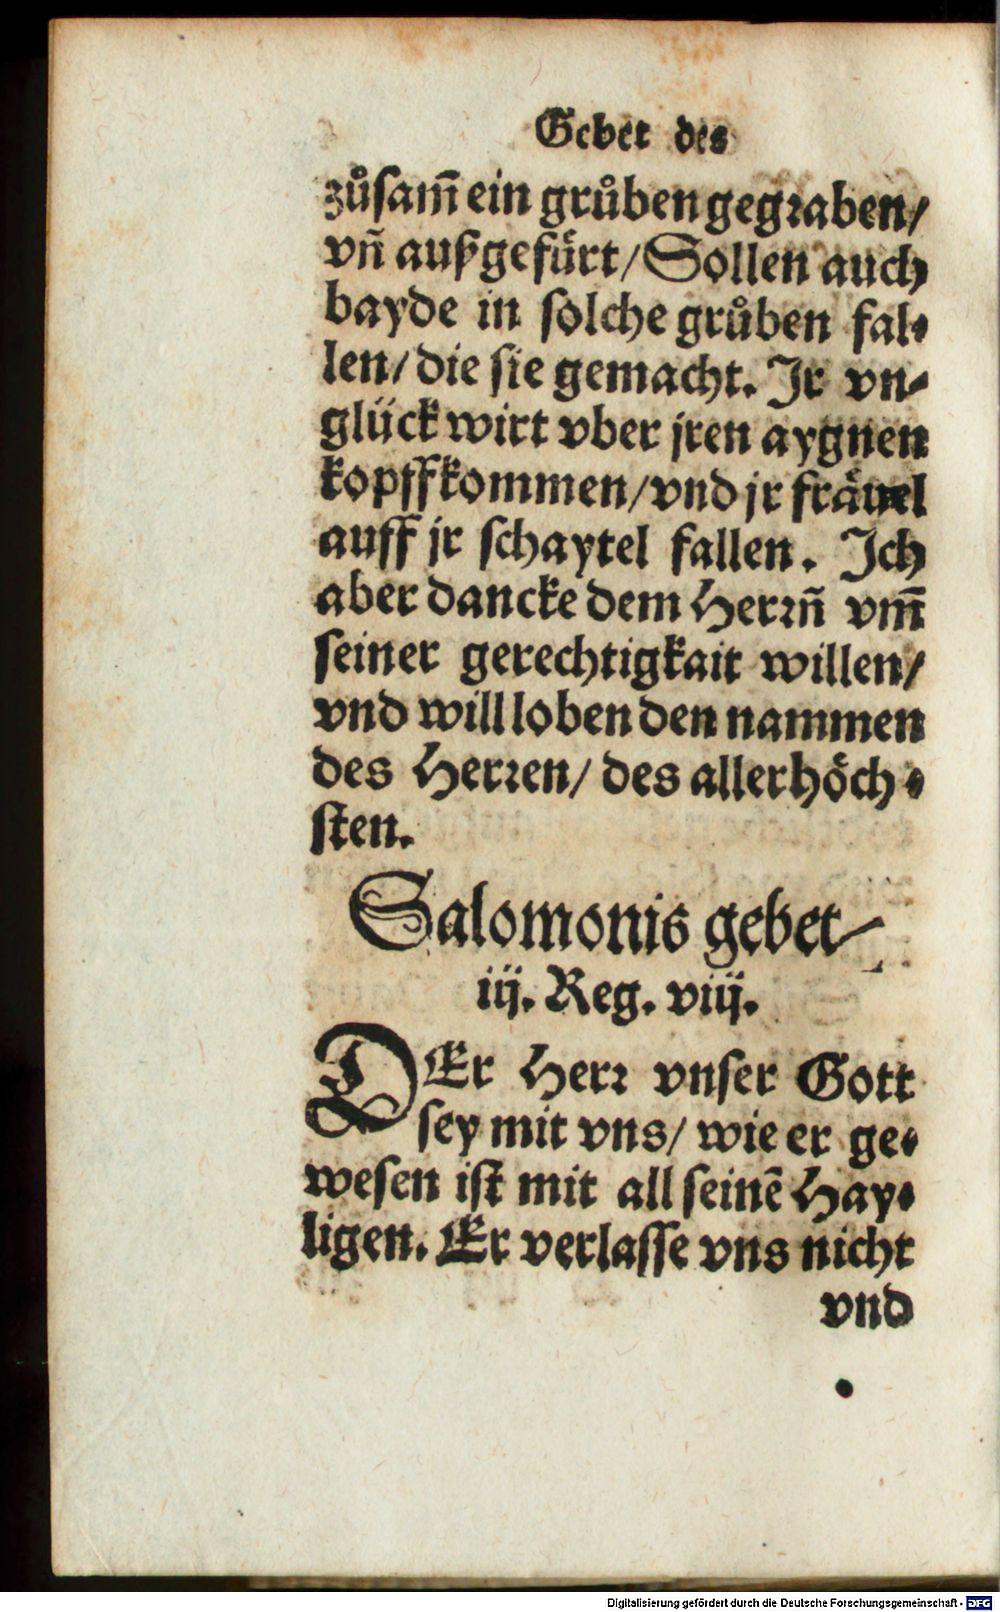 Gebet des
zůsam̄ ein grůben gegraben/
vn̄ außgefuͤrt/ Sollen auch
bayde in solche grůben fal⸗
len/ die sie gemacht. Jr vn⸗
glück wirt vber jren aygnen
kopff kommen/ vnd jr fraͤuel
auff jr schaytel fallen. Jch
aber dancke dem Herrn̄ vm̄
seiner gerechtigkait willen/
vnd will loben den nammen
des Herren/ des allerhoͤch⸗
sten.
Salomonis gebet
iij. Reg. viij.
DEr Herr vnser Gott
sey mit vns/ wie er ge⸗
wesen ist mit all seinē Hay⸗
ligen. Er verlasse vns nicht
vnd
Digitalisierung gefördert durch die Deutsche Forschungsgemeinschaft - DFG